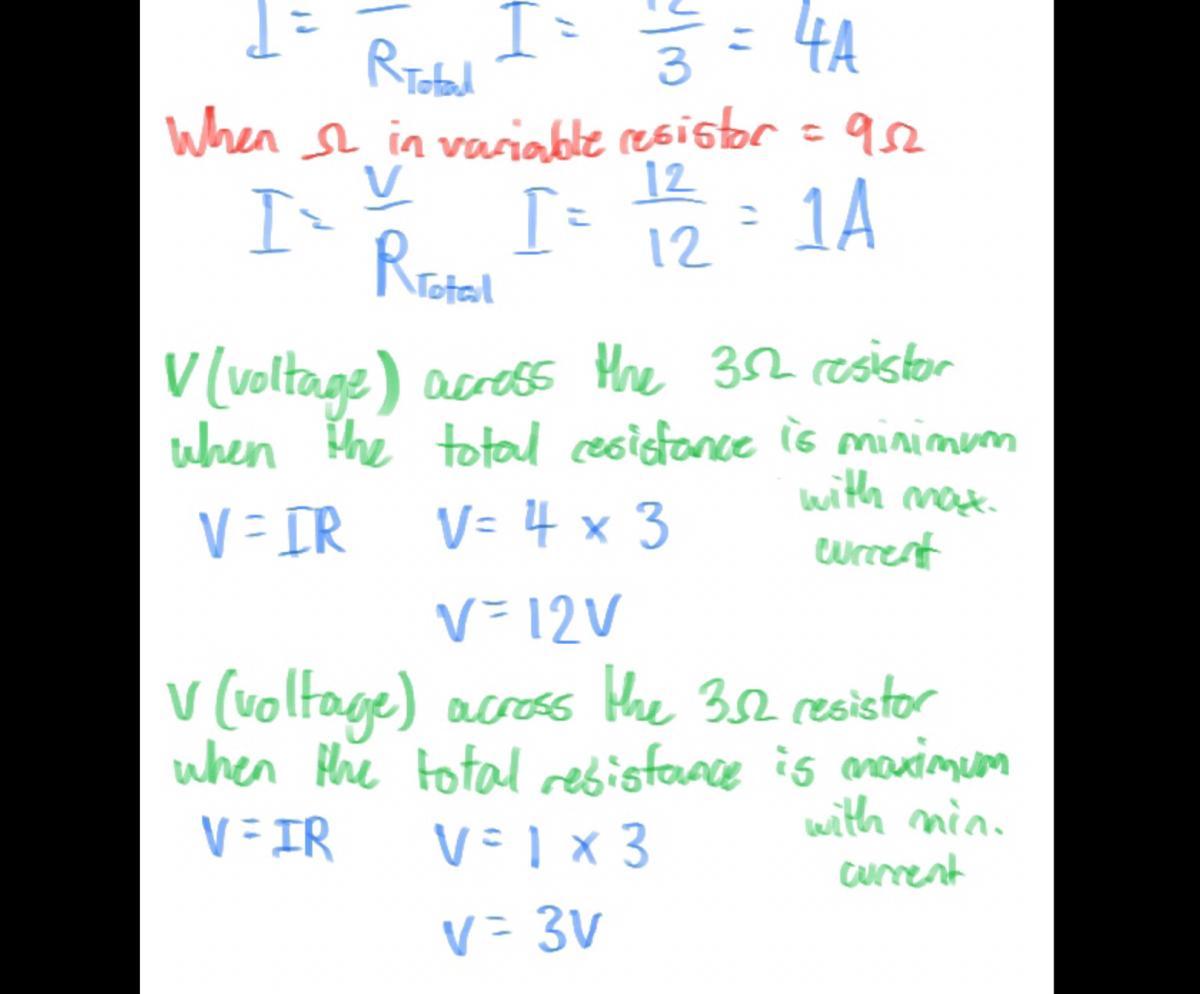 I = — / R Total I = 12/3 = 4A
When Ω in variable resistor = 9Ω
I = V/R Total I = 12/12 = 1A
V (voltage) across the 3Ω resistor
when the total resistance is minimum
with max.
current
V = IR V = 4 × 3
V = 12V
V (voltage) across the 3Ω resistor
when the total resistance is maximum
with min.
current
V = IR V = 1 × 3
V = 3V